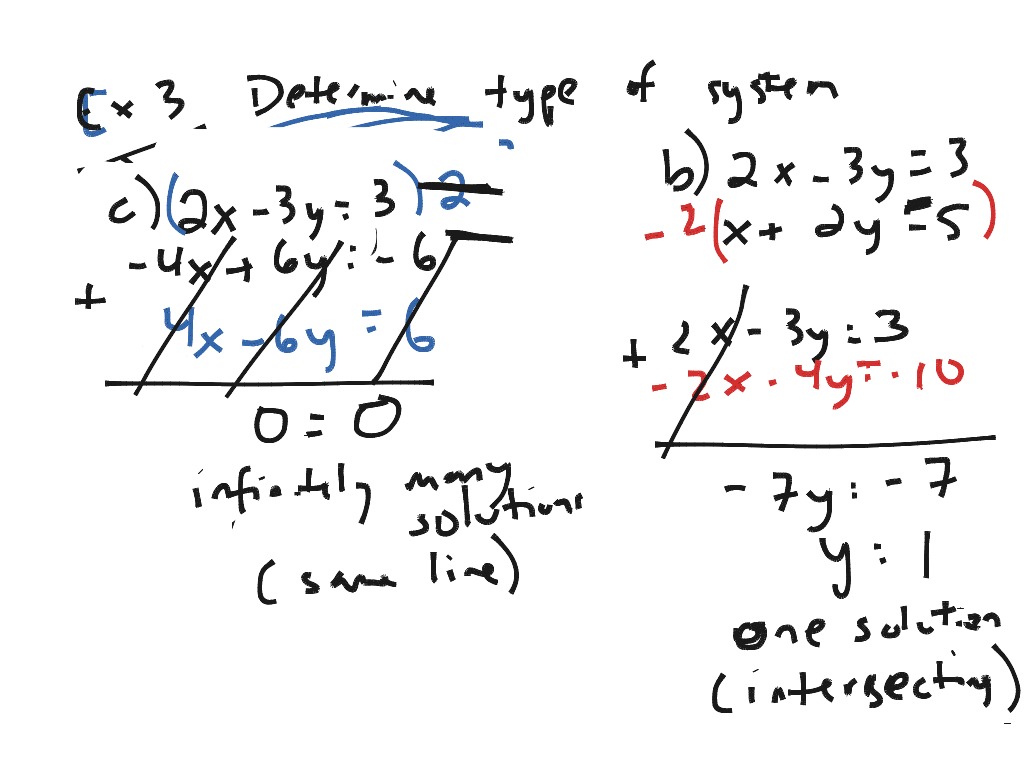 Ex 3 Determine type of system
c) (2x - 3y = 3) 2
-4x + 6y = -6
+
4x - 6y = 6
0 = 0
infinitely many
solutions
(same line)
b) 2x - 3y = 3
-2(x + 2y = 5)
2x - 3y = 3
+
-2x - 4y = -10
-7y = -7
y = 1
one solution
(intersecting)